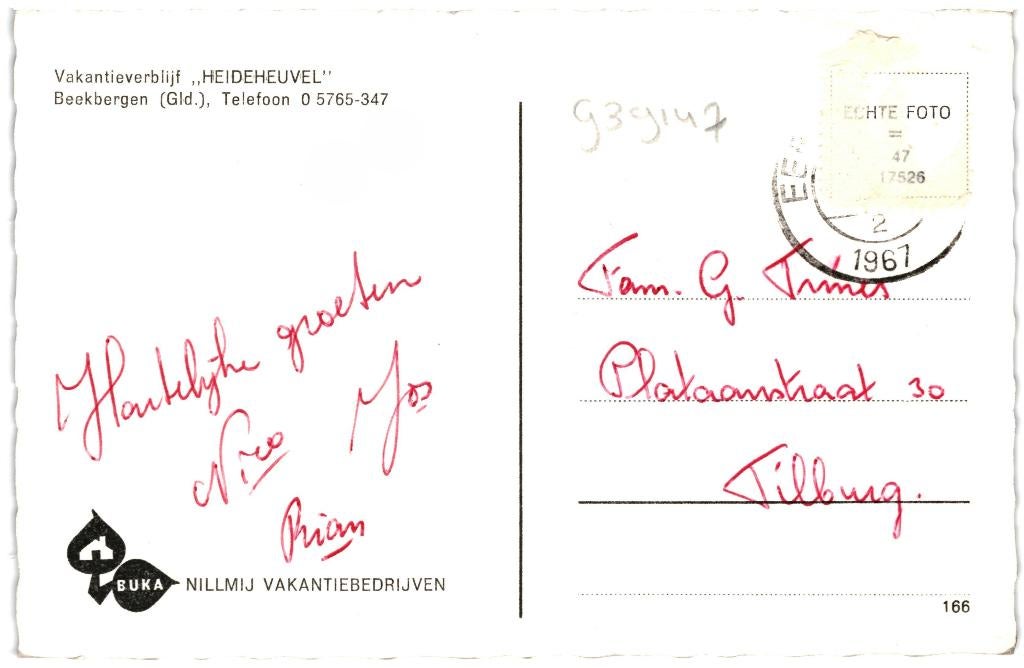 Vakantieverblijf ,,HEIDEHEUVEL''
Beekbergen (Gld.), Telefoon 0 5765-347
Hartelijke groeten
Jos
Nico
Rian
BUKA NILLMIJ VAKANTIEBEDRIJVEN
G39147
ECHTE FOTO
=
47
17526
EE
2
1967
Fam. G.
Plataanstraat 30
Tilburg.
166